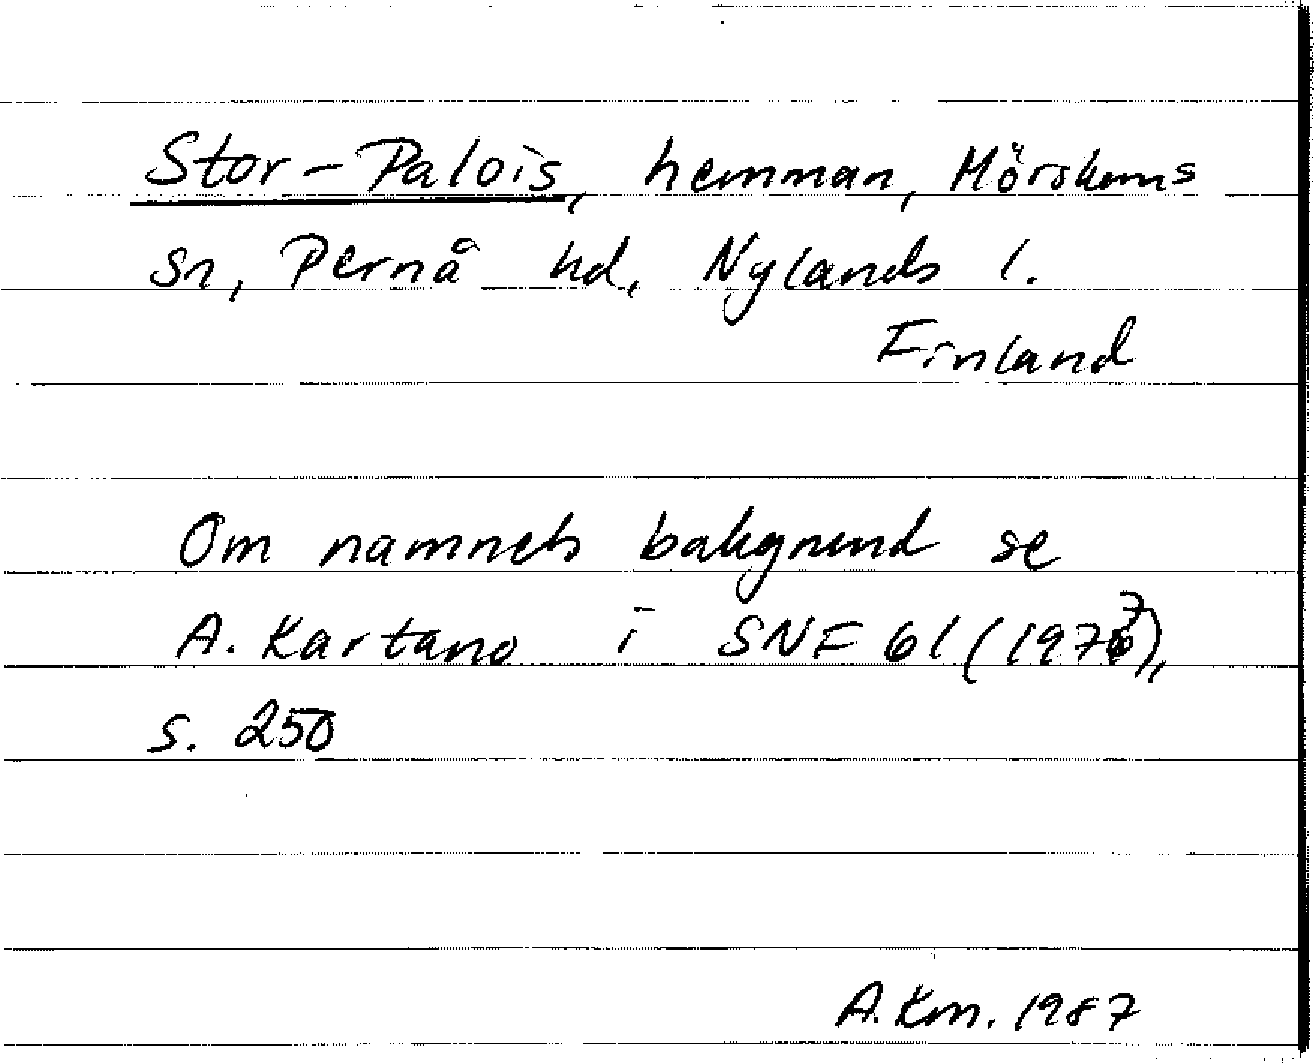 Stor-Palois, hemman, Mörskoms
sn, Pernå hd, Nylands l.
Finland
Om namnets bakgrund se
A. Kartano i SNF 61 (1973),
s. 250
A. Km. 1987